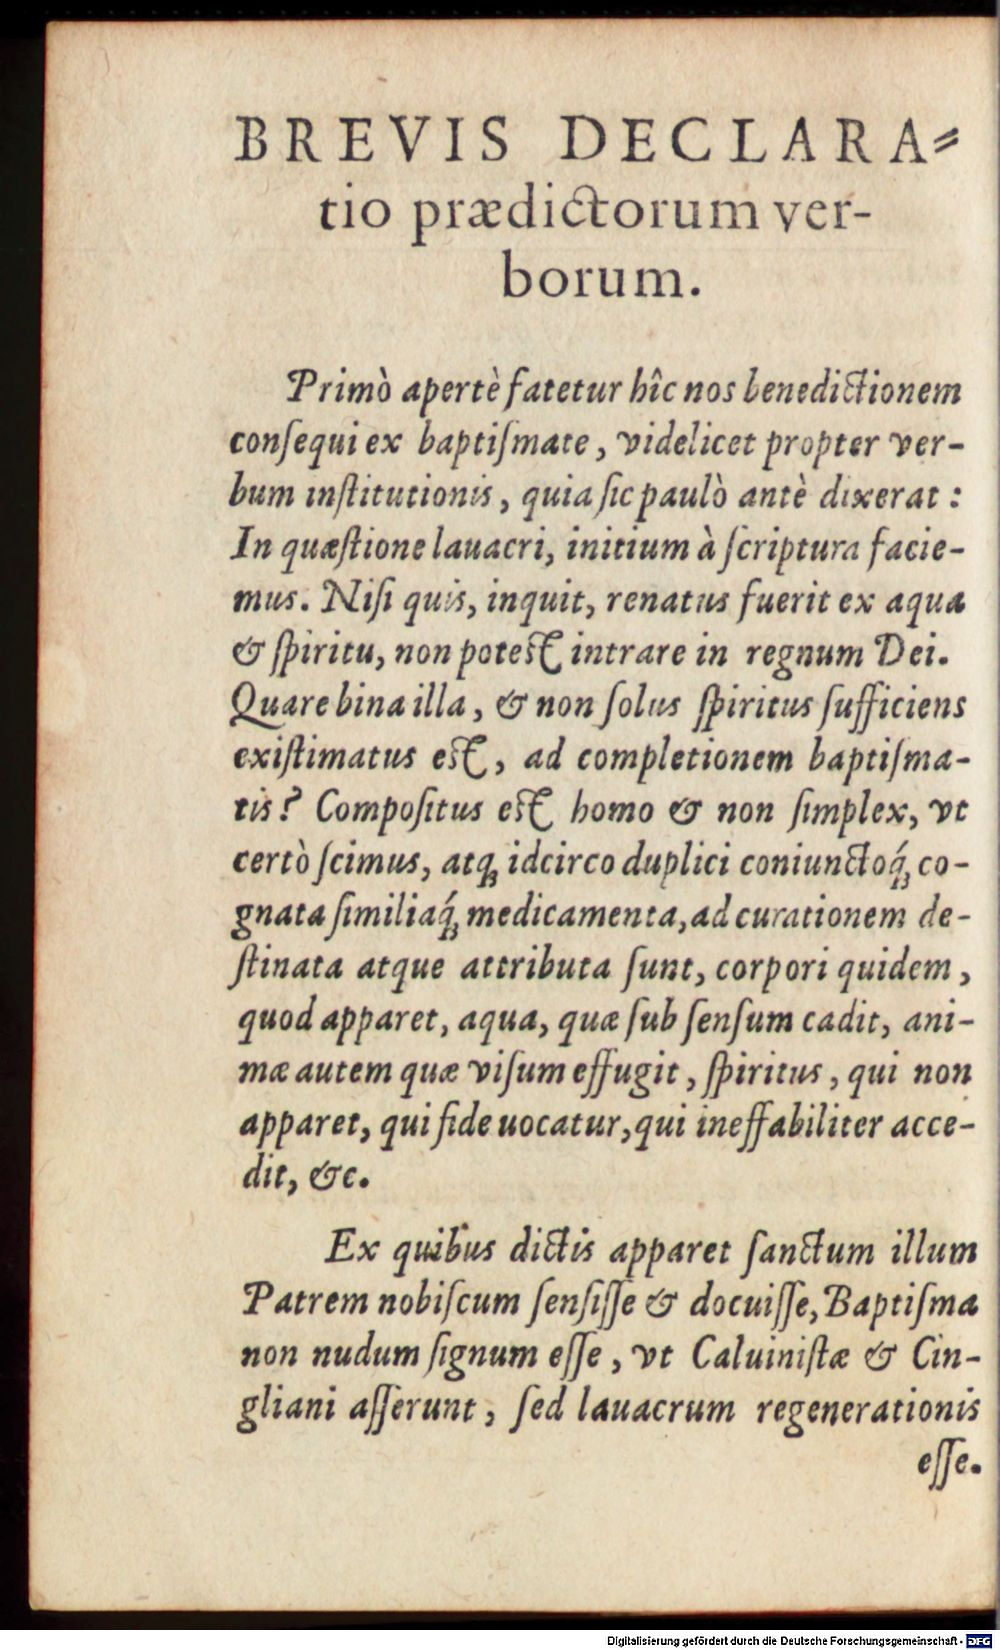 BREVIS DECLARA⸗
tio prædictorum ver-
borum.
Primò apertè fatetur hîc nos benedictionem
conſequi ex baptiſmate, videlicet propter ver-
bum inſtitutionis, quia ſic paulò antè dixerat:
In quæſtione lauacri, initium à ſcriptura facie-
mus. Niſi quis, inquit, renatus fuerit ex aqua
& ſpiritu, non poteſt intrare in regnum Dei.
Quare bina illa, & non ſolus ſpiritus ſufficiens
exiſtimatus eſt, ad completionem baptiſma-
tis? Compoſitus eſt homo & non ſimplex, vt
certò ſcimus, atq́ꝫ idcirco duplici coniunctoq́ꝫ co-
gnata ſimiliaq́ꝫ medicamenta, ad curationem de-
ſtinata atque attributa ſunt, corpori quidem,
quod apparet, aqua, quæ ſub ſenſum cadit, ani-
mæ autem quæ viſum effugit, ſpiritus, qui non
apparet, qui fide uocatur, qui ineffabiliter acce-
dit, &c.
Ex quibus dictis apparet ſanctum illum
Patrem nobiſcum ſenſiſſe & docuiſſe, Baptiſma
non nudum ſignum eſſe, vt Caluiniſtæ & Cin-
gliani aſſerunt, ſed lauacrum regenerationis
eſſe.
Digitalisierung gefördert durch die Deutsche Forschungsgemeinschaft - DFG